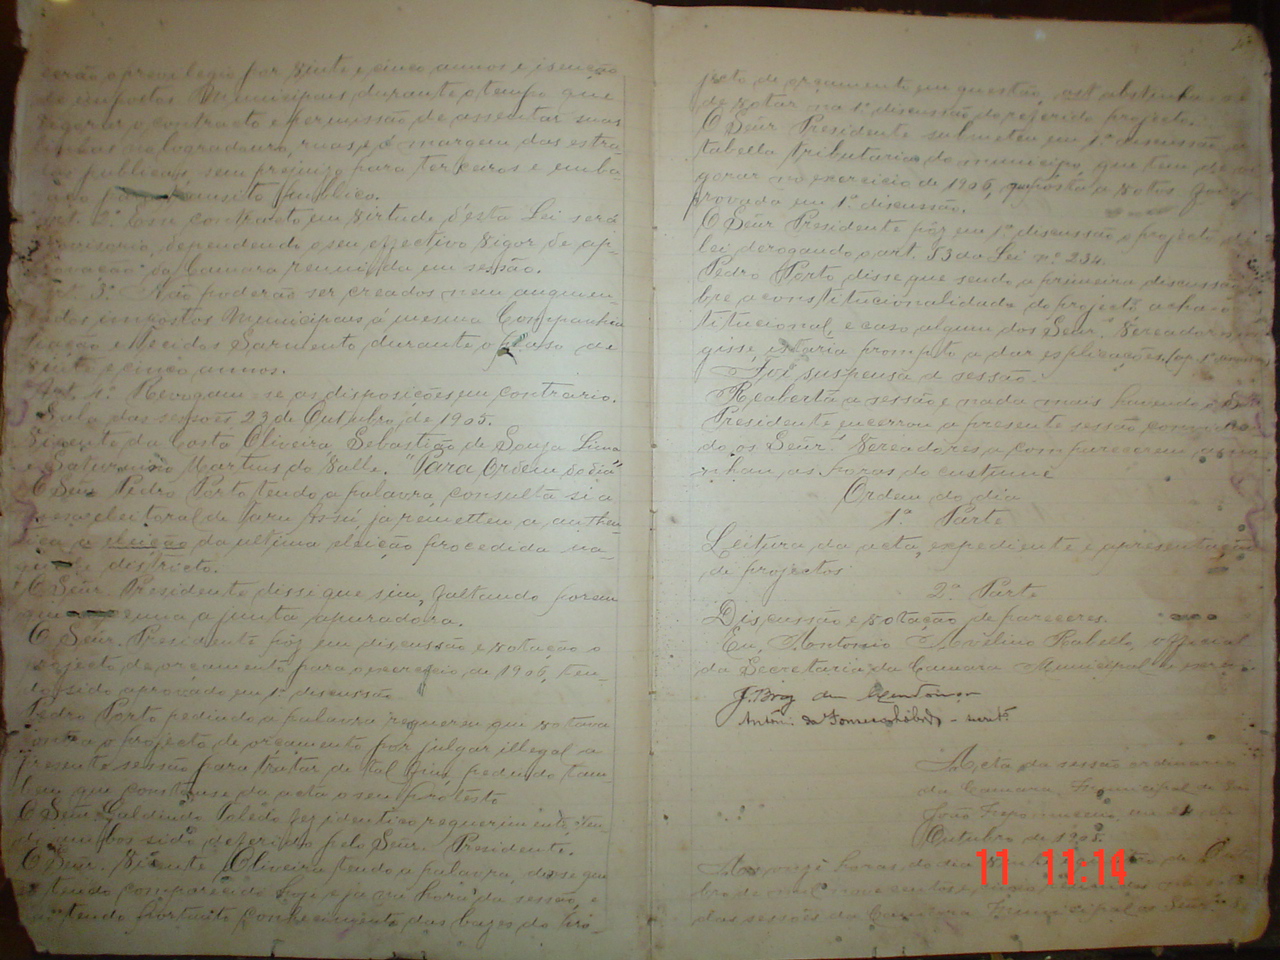 cerão o previlegio por vinte e cinco annos e isenção
de impostos Municipaes durante o tempo que
vigorar o contracto e permissão de assentar suas
linhas no logradouro, ruas, e á margem das estra-
das publicas, sem prejuizo para terceiros e emba-
raço para transito publico.
Art. 2º Esse contracto em virtude d'esta Lei será
provisorio, dependendo o seu effectivo vigor de ap-
provação da Camara reunida em sessão.
Art. 3º Não poderão ser creados nem augmen-
tados impostos Municipaes á mesma Companhia
Fiação e Tecidos Sarmento durante o praso de
vinte e cinco annos.
Art. Revogam-se as disposições em contrario.
Sala das sessões, 23 de Outubro de 1905.
Vicente da Costa Oliveira, Sebastião de Souza Lima
e Saturnino Martins do Valle. "Para Ordem do dia"
O Sñr. Pedro Porto tendo a palavra, consulta si a
mesa eleitoral de Taru Assú, ja remetteu a authen-
tica a eleição da ultima eleição procedida na-
quelle districto.
O Sñr. Presidente disse que sim, faltando porem
a junta apuradora.
O Sñr. Presidente poz em discussão e votação o
projecto de orçamento para o exercicio de 1906, ten-
do sido aprovado em 1ª discussão
Pedro Porto pedindo a palavra requereu que votava
contra o projecto de orçamento por julgar illegal a
presente sessão para tratar de tal fim, pedindo tam-
bem que constasse da acta o seu protesto
O Sñr. Galdindo Toledo fez identico requerimento, ten-
do ambos sido deferido pelo Sñr. Presidente.
O Sñr. Vicente Oliveira tendo a palavra, disse que
tendo comparecido hoje e ja na hora da sessão, e
tendo portanto conhecimento das bazes do pro-
jecto de orçamento em questão, abstinha-se
de votar na 1ª discussão do referido projecto.
O Sñr. Presidente submetteu em 1ª discussão a
tabella tributaria do municipio, que tem de vi-
gorar no exercicio de 1906, posta a votos foi ap-
provada em 1ª discussão.
O Sñr. Presidente poz em 1ª discussão o projecto de
lei derogando o art. 53 da Lei nº 234.
Pedro Porto disse que sendo a primeira discussão so-
bre a constitucionalidade do project. acha-o
titucional, e caso algum dos Sñr. Vereadores exi-
gisse, estaria prompto a dar explicações.
Foi suspensa a sessão.
Reaberta a sessão e nada mais havendo o
Presidente encerrou a presente sessão convidan-
do os Sñr. Vereadores a comparecerem amanhã
as horas do custume
Ordem do dia
1ª Parte
Leitura da acta, expediente e apresentação
de projectos
2ª Parte
Discussão e votação de pareceres.
Eu, Antonio Avelino Rabello, official
da Secretaria da Camara Municipal a escrevi.
Acta da sessão ordinaria
da Camara Municipal de São
João Nepomuceno, em 24 de
Outubro de 1905.
horas do dia
bro de mil nove centos e cinco, reunidos na sala
das sessões da Camara Municipal os Sñr.
11 11:14